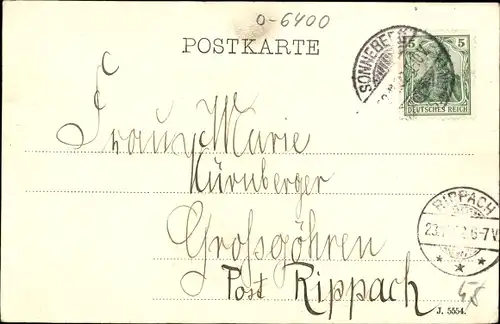 0-6400
POSTKARTE
SONNEBERG
5 5
DEUTSCHES REICH
Frau Marie
Nürnberger
Großgöhren
Post Rippach
RIPPACH
23. 6-7V.
J. 5554.